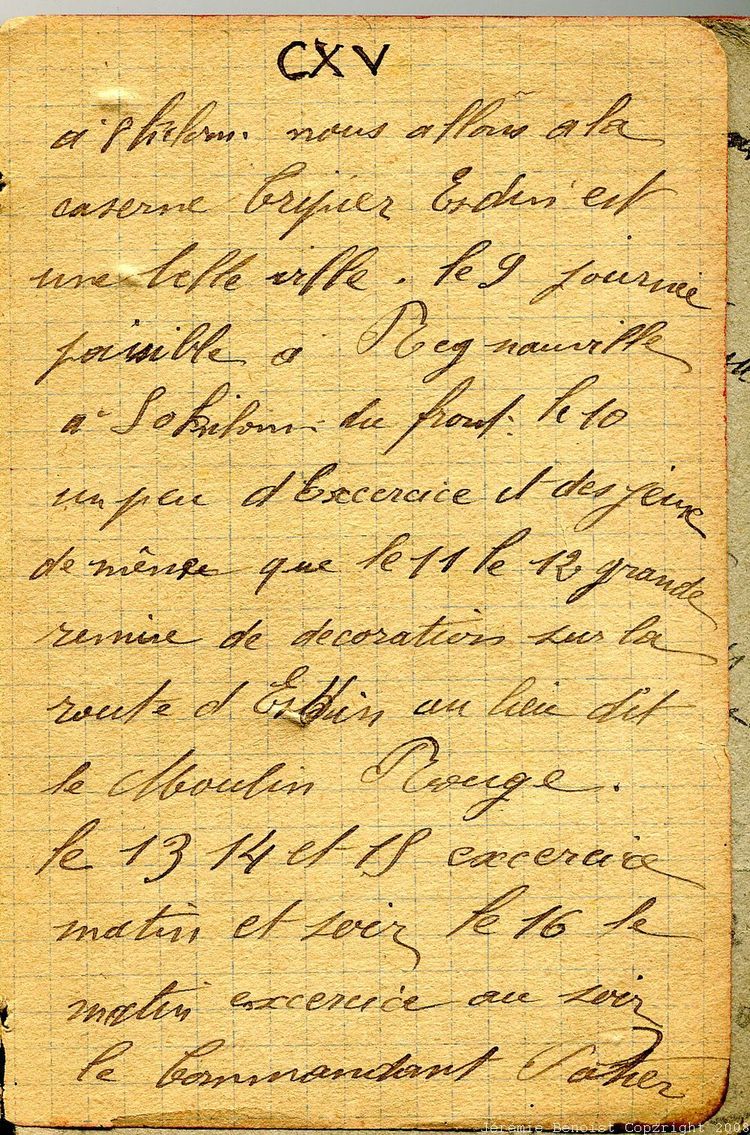 CXV
a 8 kilom. nous allons a la
caserne Tripier Esdin est
une belle ville. le 9 journée
paisible a Regnauville
a 50 kilom. du front. le 10
un peu d'Excercice et des jeux
de même que le 11 le 12 grande
remise de decoration sur la
route d Esdin au lieu dit
le Moulin Rouge.
le 13 14 et 15 excercice
matin et soir le 16 le
matin excercice au soir
le Commandant
Jérémie Benoist Copyright 2008